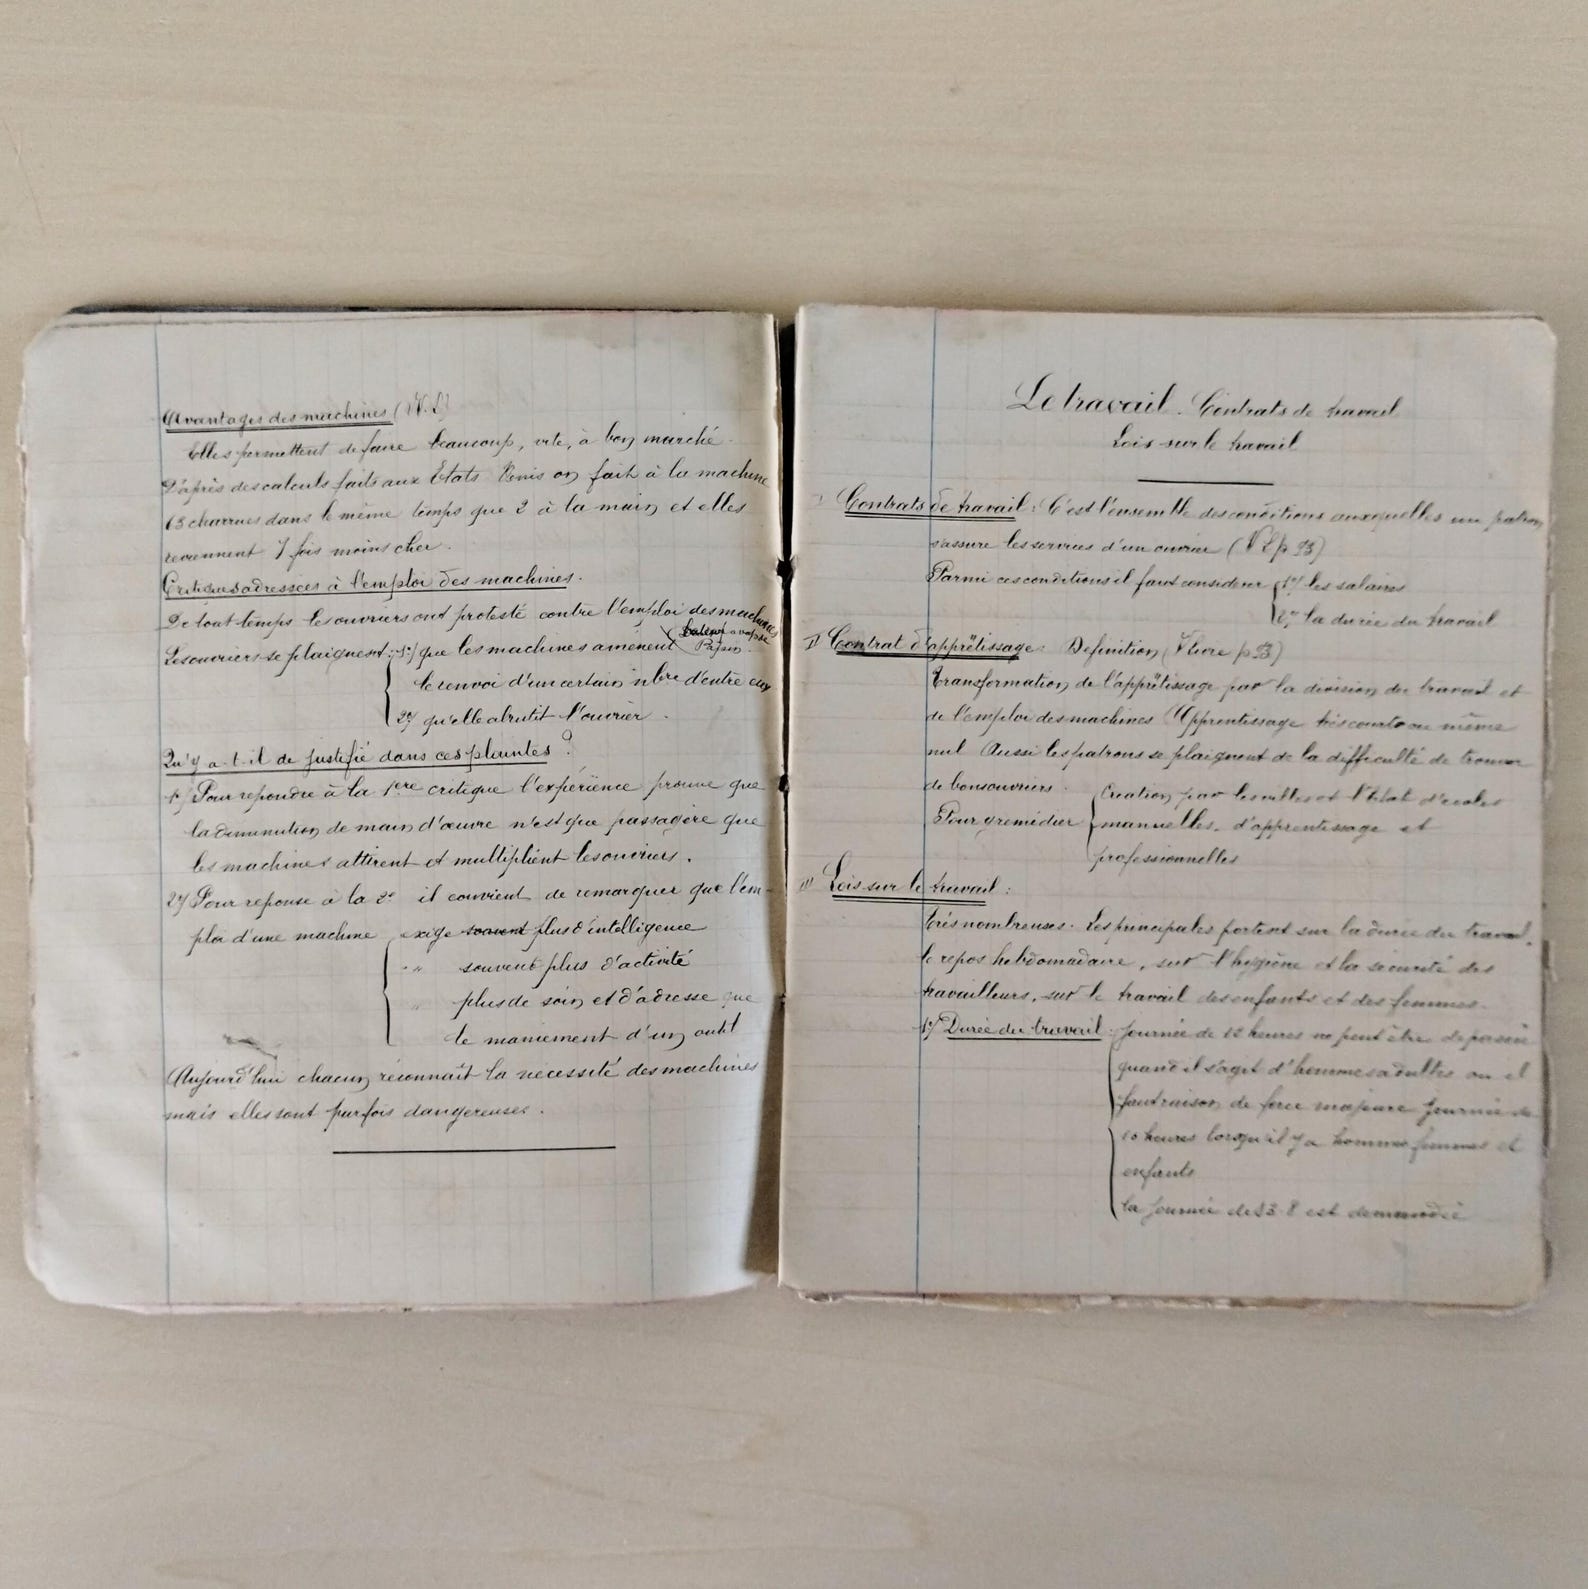 Avantages des machines (V. L)
Elles permettent de faire beaucoup, vite, à bon marché.
D'après des calculs faits aux Etats Unis on fait à la machine
13 charrues dans le même temps que 2 à la main et elles
reviennent 7 fois moins cher.
Critiques adressées à l'emploi des machines.
De tout temps les ouvriers ont protesté contre l'emploi des machines
(bateau à vapeur
Papin.
Les ouvriers se plaignent : 1º) que les machines amènent
le renvoi d'un certain nbre d'entre eux
2º) qu'elle abrutit l'ouvrier.
Qu'y a-t-il de justifié dans ces plaintes ?
1º) Pour repondre à la 1ère critique l'expérience prouve que
la diminution de main d'œuvre n'est que passagère que
les machines attirent et multiplient les ouvriers.
2º) Pour reponse à la 2e il convient de remarquer que l'em-
ploi d'une machine exige souvent plus d'intelligence
" " souvent plus d'activité
" plus de soin et d'adresse que
le maniement d'un outil
Aujourd'hui chacun reconnaît la necessité des machines
mais elles sont parfois dangereuses.
Le travail. Contrats de travail
Lois sur le travail
I Contrats de travail : C'est l'ensemble des conditions auxquelles un patron
s'assure les services d'un ouvrier (V L p 93)
Parmi ces conditions il faut considérer 1º) les salaires
2º) la durée du travail
II Contrat d'apprêtissage : Definition (V livre p 93)
Transformation de l'apprêtissage par la division du travail et
de l'emploi des machines Apprentissage très court ou même
nul Aussi les patrons se plaignent de la difficulté de trouver
de bons ouvriers.
Pour y remédier Creation par les villes et l'Etat d'ecoles
manuelles, d'apprentissage et
professionnelles
III Lois sur le travail :
très nombreuses. Les principales portent sur la durée du travail,
le repos hebdomadaire, sur l'hygiène et la sécurité des
travailleurs, sur le travail des enfants et des femmes.
1º) Durée du travail : Journée de 12 heures ne peut être dépassée
quand il s'agit d'hommes adultes ou il
faut raison de force majeure Journée de
10 heures lorsqu'il y a hommes femmes et
enfants
la journée de 8 est demandée